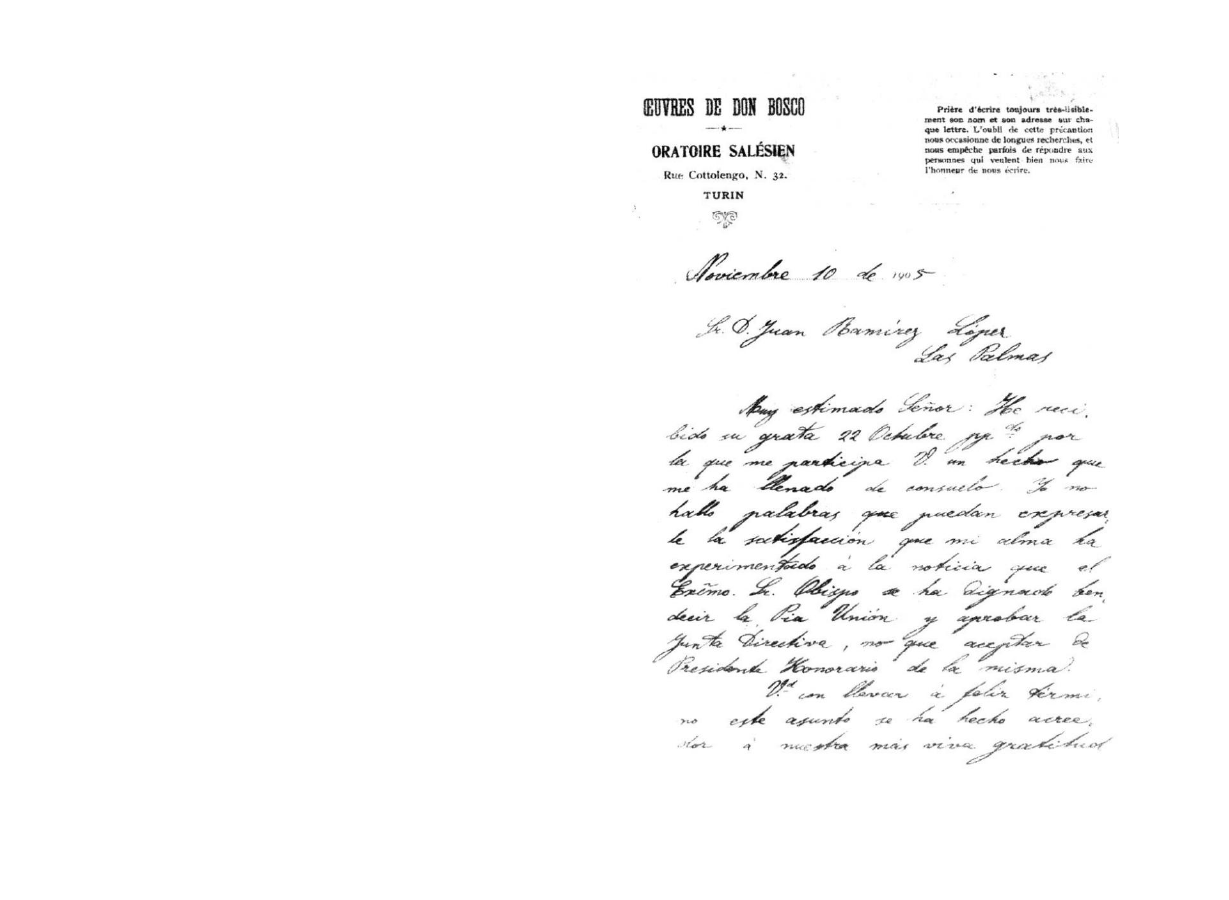 ŒUVRES DE DON BOSCO
ORATOIRE SALÉSIEN
Rue Cottolengo, N. 32.
TURIN
Prière d'écrire toujours très-lisible-
ment son nom et son adresse sur cha-
que lettre. L'oubli de cette précaution
nous occasionne de longues recherches, et
nous empêche parfois de répondre aux
personnes qui veulent bien nous faire
l'honneur de nous écrire.
Noviembre 10 de 1905
Sr. D. Juan Ramírez López
Las Palmas
Muy estimado Señor: He reci-
bido su grata 22 Octubre pp.do por
la que me participa V. un hecho que
me ha llenado de consuelo. Yo no
hallo palabras que puedan expresar-
le la satisfacción que mi alma ha
experimentado à la noticia que el
Exc̃mo. Sr. Obispo se ha dignado ben-
decir la Pia Unión y aprobar la
Junta Directiva, no que aceptar de
Presidente Honorario de la misma.
V.d con llevar à feliz térmi-
no este asunto se ha hecho acree-
dor à nuestra más viva gratitud